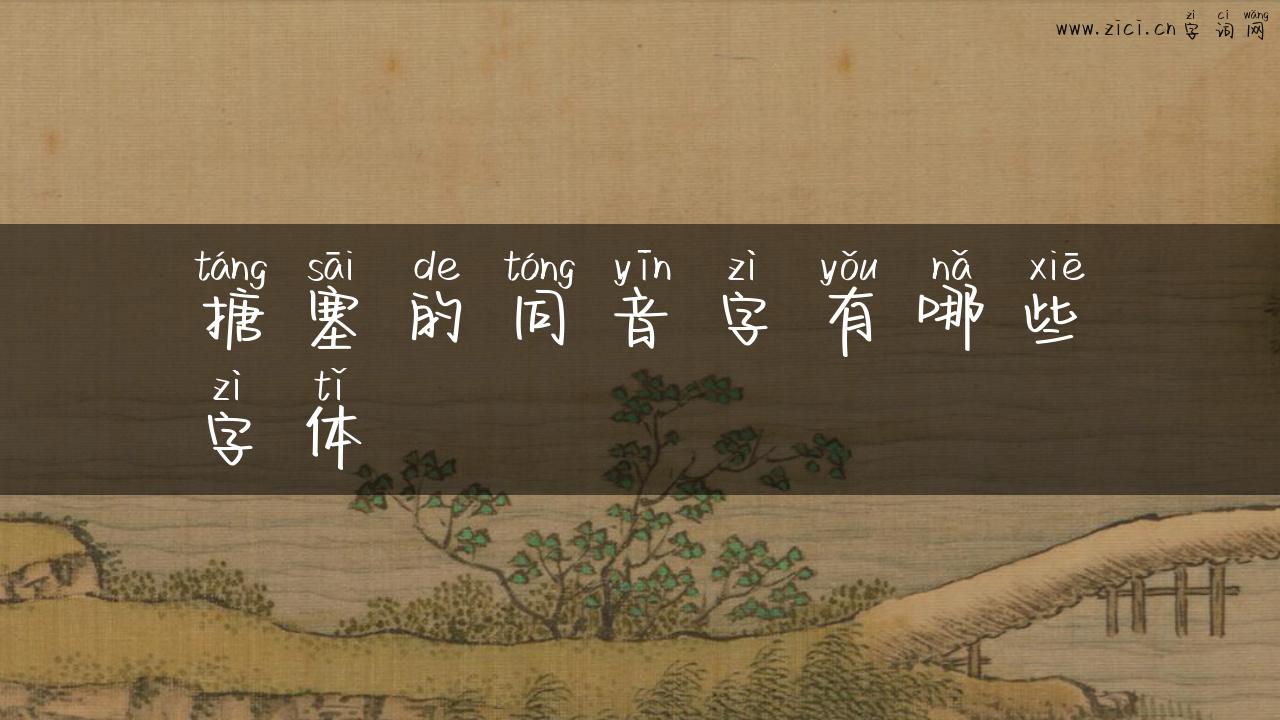 zì cí wǎng
www.zici.cn 字词网
táng sāi de tóng yīn zì yǒu nǎ xiē
搪塞的同音字有哪些
zì tǐ
字体